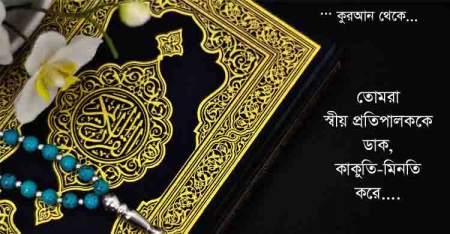 ... কুরআন থেকে...
তোমরা
স্বীয় প্রতিপালককে
ডাক,
কাকুতি-মিনতি
করে....